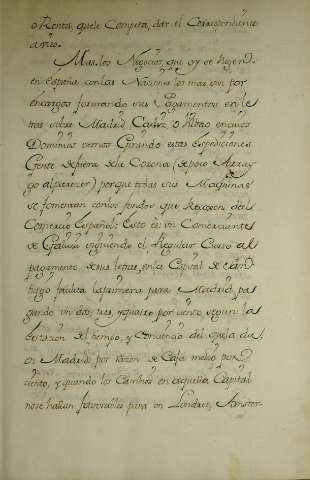 o Renta, quele Competa, dar el Correspondiente
aviso.
Mas los Negocios que oy se hazen
en españa con las Naciones los mas son por
encargos formando sus Pagamentos en le
tras sobre Madrid Cadiz, o Bilbao en cuios
Dominios vemos Girando estas expediciones
Gente de fuera de la Corona (de poco Array
go al parezer) porque todas sus Maquinas
se fomentan con los fondos que Recoxen del
Comercio Español: Esto es: un Comerciante
de Galicia siguiendo el Regular Curso al
pagamento de sus letras, en la Capital de San
tiago facilita la primera para Madrid pa
gando un dos, tres, y quatro por ciento segun la
estacion del tiempo, y Conducia del que la da,
en Madrid por razon de Caja medio por
ciento, y quando los Cambios en aquella Capital
no se hallan faborables para con Londres, Amster-